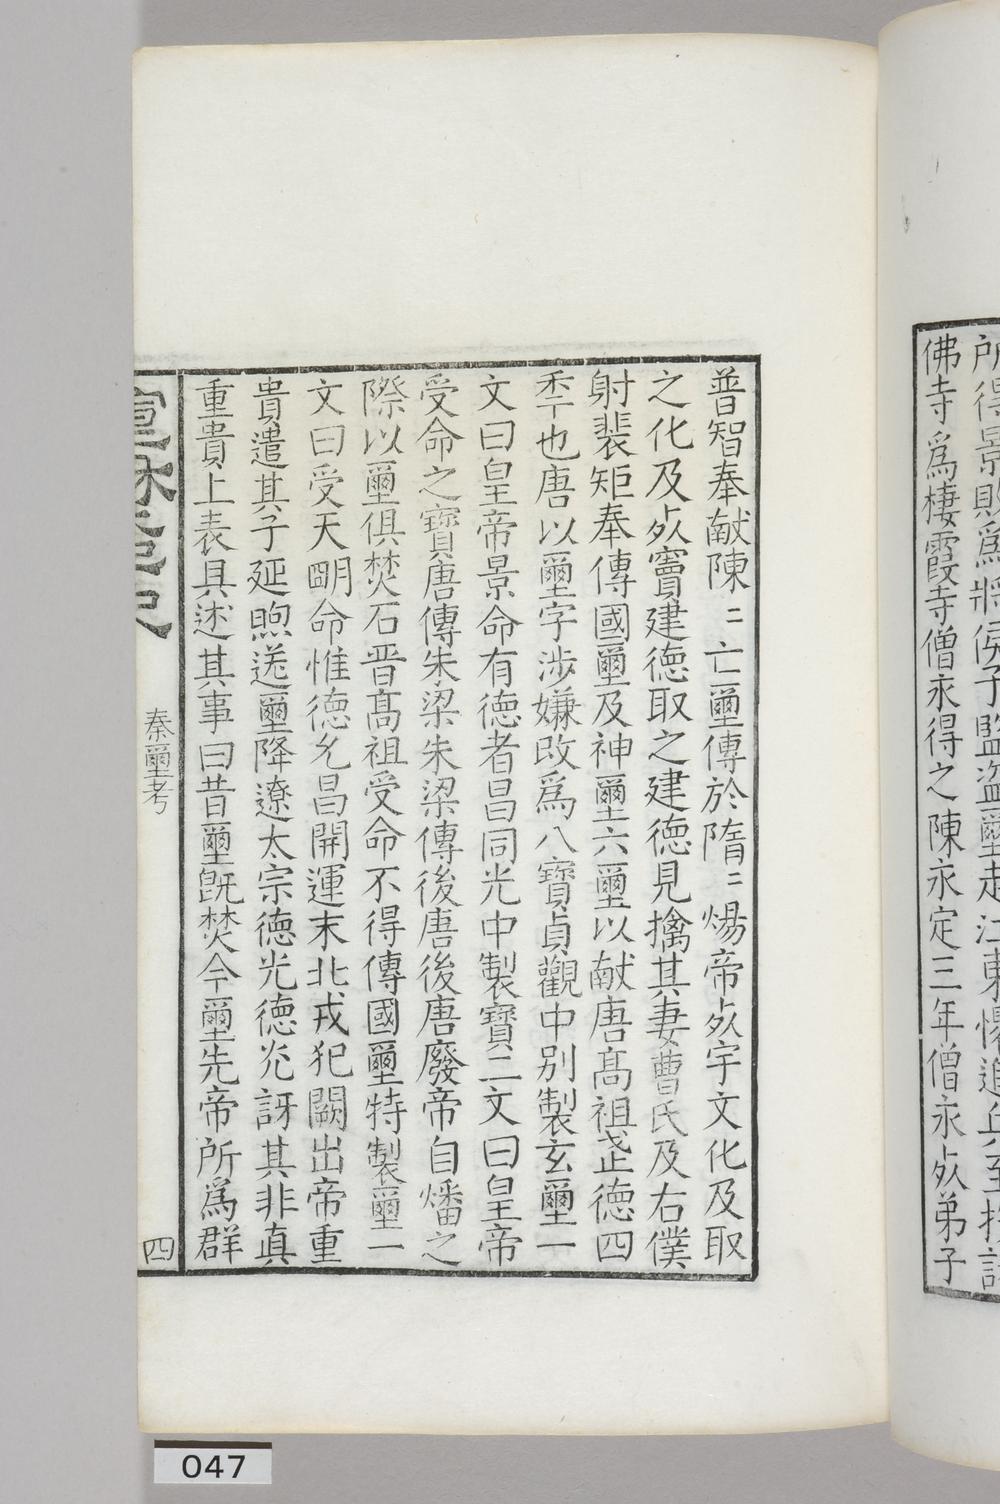 所得景敗爲將侯子監盜璽走江東懼追兵至投諸
佛寺爲棲霞寺僧永得之陳永定三年僧永歿弟子
普智奉献陳〻亡璽傳於隋〻煬帝歿宇文化及取
之化及歿竇建德取之建德見擒其妻曹氏及右僕
射裴矩奉傳國璽及神璽六璽以献唐髙祖武德四
秊也唐以璽字涉嫌改爲八寶貞觀中别製玄璽一
文曰皇帝景命有德者昌同光中製寶二文曰皇帝
受命之寶唐傳朱梁朱梁傳後唐後唐廢帝自燔之
際以璽俱焚石晋髙祖受命不得傳國璽特製璽一
文曰受天朙命惟德允昌開運末北戎犯闕出帝重
貴遣其子延煦送璽降遼太宗德光德光訝其非真
重貴上表具述其事曰昔璽旣焚今璽先帝所爲群
秦璽考
四
047